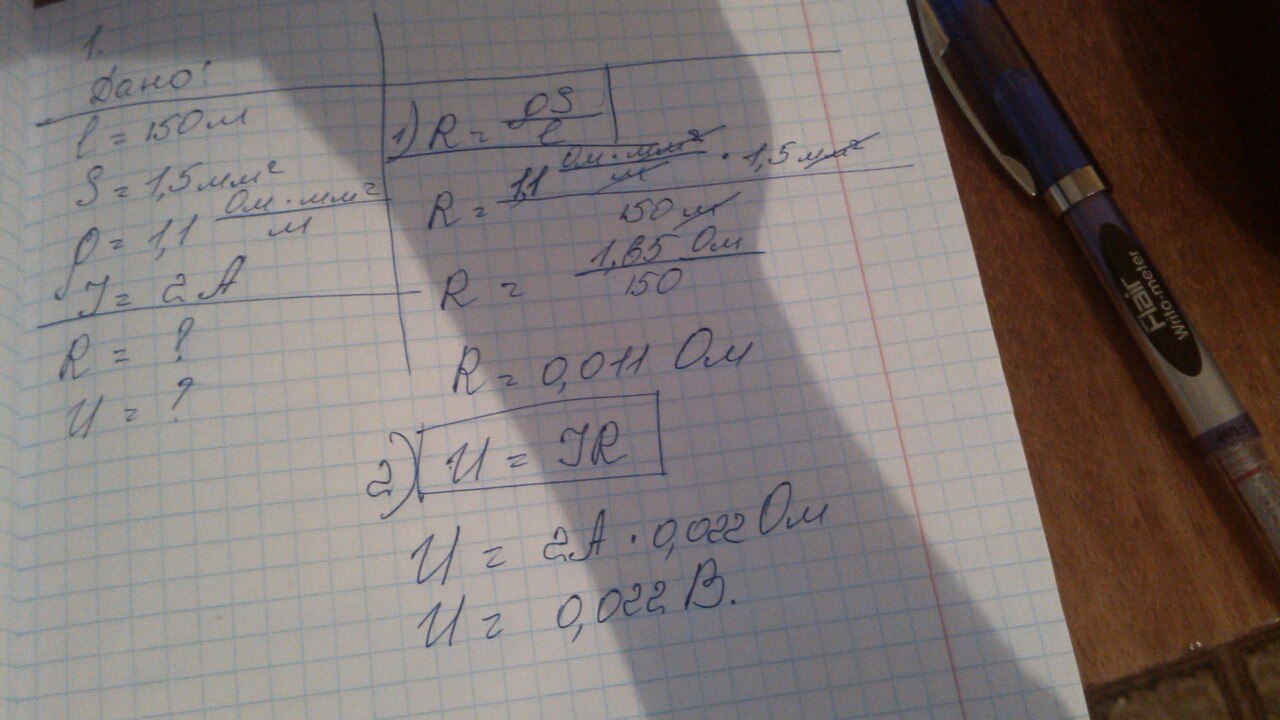 1.
Дано:
l = 150 м
S = 1,5 мм²
ρ = 1,1 Ом·мм²/м
I = 2 А
R = ?
U = ?
1) R = ρS/l
R = 1,1 Ом·мм²/м · 1,5 мм² / 150 м
R = 1,65 Ом / 150
R = 0,011 Ом
2) U = IR
U = 2А · 0,022 Ом
U = 0,022 В.
Flair
Writo-meter